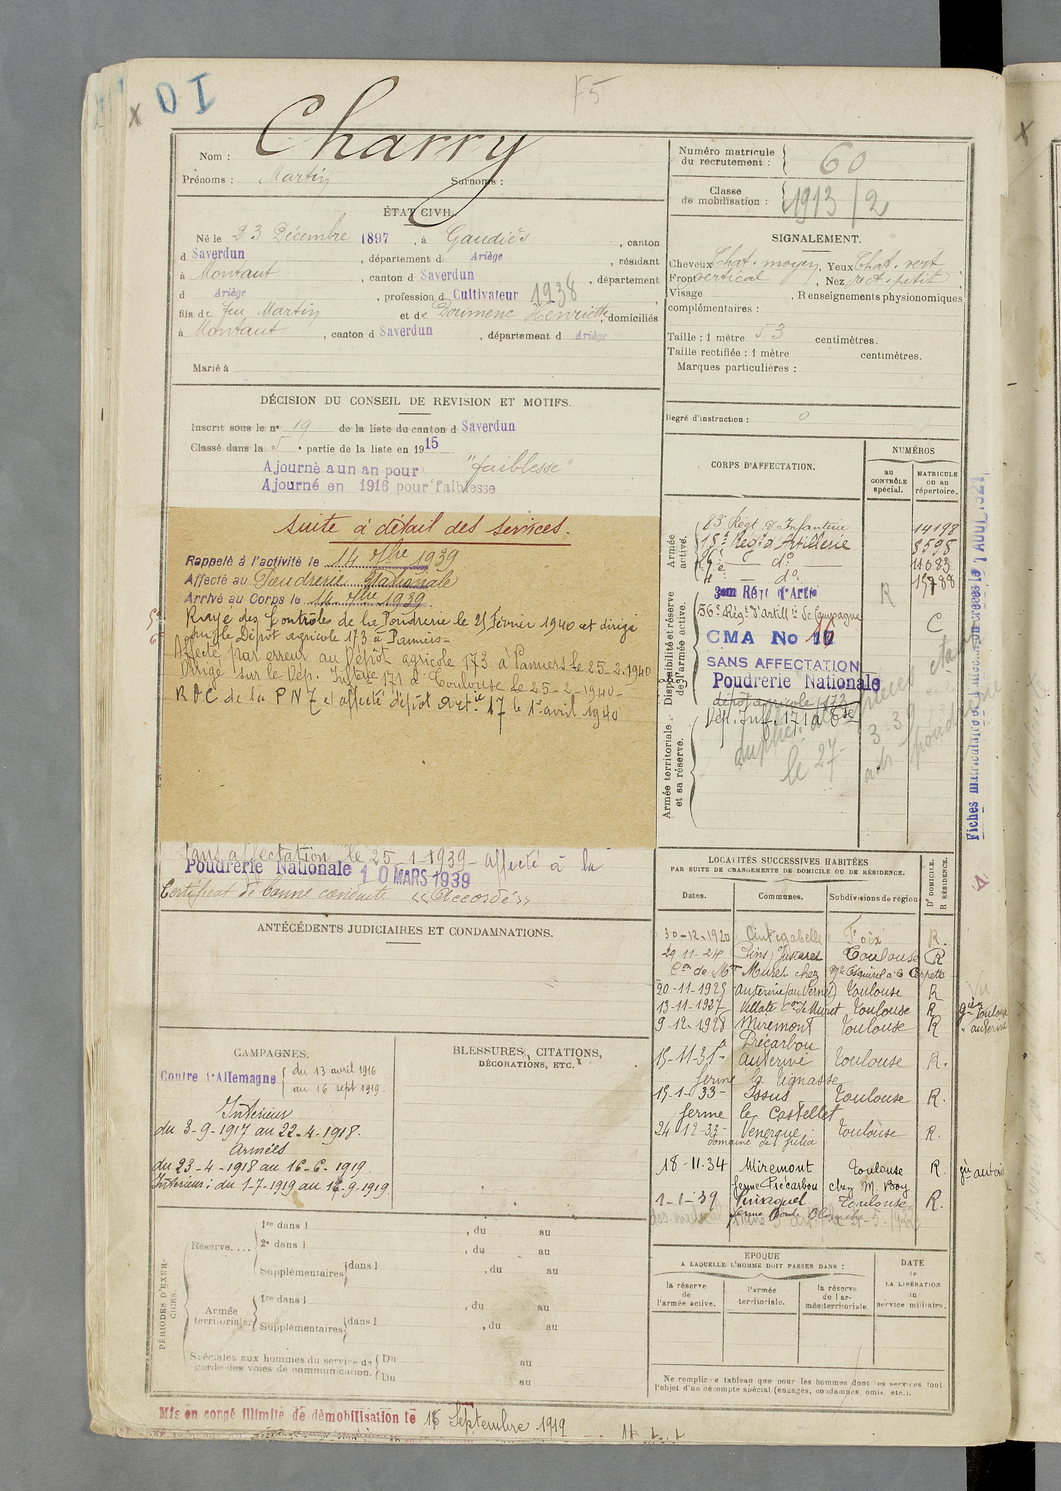 OI
F5
x
Nom : Charry
Prénoms : Martin Surnoms :
ÉTAT CIVIL.
Né le 23 Décembre 1897, à Gaudiès, canton
d Saverdun, département d Ariège, résidant
à Montaut, canton d Saverdun, département
d Ariège, profession d Cultivateur 1938
fils de feu Martin et de Doumenc Henriette, domiciliés
à Montaut, canton d Saverdun, département d Ariège
Marié à
DÉCISION DU CONSEIL DE REVISION ET MOTIFS.
Inscrit sous le n° 19 de la liste du canton d Saverdun
Classé dans la 5e partie de la liste en 1915
Ajourné a un an pour "faiblesse"
Ajourné en 1916 pour faiblesse
Suite à détail des services.
Rappelé à l'activité le 14 7bre 1939
Affecté au Poudrerie Nationale
Arrivé au Corps le 14 7bre 1939
Rayé des Contrôles de la Poudrerie le 25 Février 1940 et dirigé
sur le Dépôt agricole 173 à Pamiers =
Affecté par erreur au Dépôt agricole 173 à Pamiers le 25-2-1940
Dirigé sur le Dép. Infterie 171 à Toulouse le 25-2-1940 -
R D C de la P N T et affecté dépôt Artie 17 le 1er avril 1940
Sans affectation le 25-1-1939 - affecté à la
Poudrerie Nationale 10 MARS 1939
Certificat de bonne conduite « Accordé »
ANTÉCÉDENTS JUDICIAIRES ET CONDAMNATIONS.
CAMPAGNES.
Contre l'Allemagne { du 13 avril 1916
au 16 sept 1919.
Intérieur
du 3-9-1917 au 22-4-1918.
Armées
du 23-4-1918 au 16-6-1919.
Intérieur : du 1-7-1919 au 16-9-1919
BLESSURES, CITATIONS,
DÉCORATIONS, ETC.
PÉRIODES D'EXERCICES.
Réserve....
1re dans l , du au
2e dans l , du au
Supplémentaires dans l , du au
Armée territoriale.
1re dans l , du au
Supplémentaires dans l , du au
Spéciales aux hommes du service de garde des voies de communication.
Du au
Du au
Mis en congé illimité de démobilisation le 16 Septembre 1919
Numéro matricule
du recrutement : 60
Classe
de mobilisation : 1913/2
SIGNALEMENT.
Cheveux Chat. moyen, Yeux Chat. vert
Front vertical, Nez rect. petit
Visage , Renseignements physionomiques
complémentaires :
Taille : 1 mètre 53 centimètres.
Taille rectifiée : 1 mètre centimètres.
Marques particulières :
Degré d'instruction : 0
CORPS D'AFFECTATION.
NUMÉROS
au CONTRÔLE spécial.
MATRICULE ou au répertoire.
Armée active.
83e Régt d'Infanterie 14198
15e Reg d'Artillerie 8595
do 11083
4e do
Disponibilité et réserve de l'armée active.
3em Régt d'Artie R
56e Régt d'Artillie de Campagne C
CMA No 16
SANS AFFECTATION
Poudrerie Nationale
dépôt agricole 173
Dép. Inf. 171 à Tse
Armée territoriale et sa réserve.
le 27
3-39
Fiches matriculaires
LOCALITÉS SUCCESSIVES HABITÉES
PAR SUITE DE CHANGEMENTS DE DOMICILE OU DE RÉSIDENCE.
Dates. Communes. Subdivisions de région D DOMICILE. R RÉSIDENCE.
30-12-1920 Cintegabelle Foix R.
29-11-24 Pins Justaret Toulouse R
Con de Muret chez
20-11-1925 Auterive Toulouse R
13-11-1927 Villate Con de Muret Toulouse R
9-12-1928 Miremont Toulouse R
Précarbou
15-11-31 à Auterive Toulouse R.
ferme la Lignasse
15-1-33 - Issus Toulouse R.
ferme le Castellet
24-12-33 - Venerque Toulouse R.
domaine de Julia
18-11-34 Miremont Toulouse R.
ferme Précarbou chez M. Boy
1-1-39 Toulouse R.
EPOQUE
A LAQUELLE L'HOMME DOIT PASSER DANS :
la réserve de l'armée active.
l'armée territoriale.
la réserve de l'armée territoriale.
DATE
DE
LA LIBÉRATION
DU
service militaire.
Ne remplir ce tableau que pour les hommes dont les services font
l'objet d'un décompte spécial (engagés, condamnés, omis, etc.).